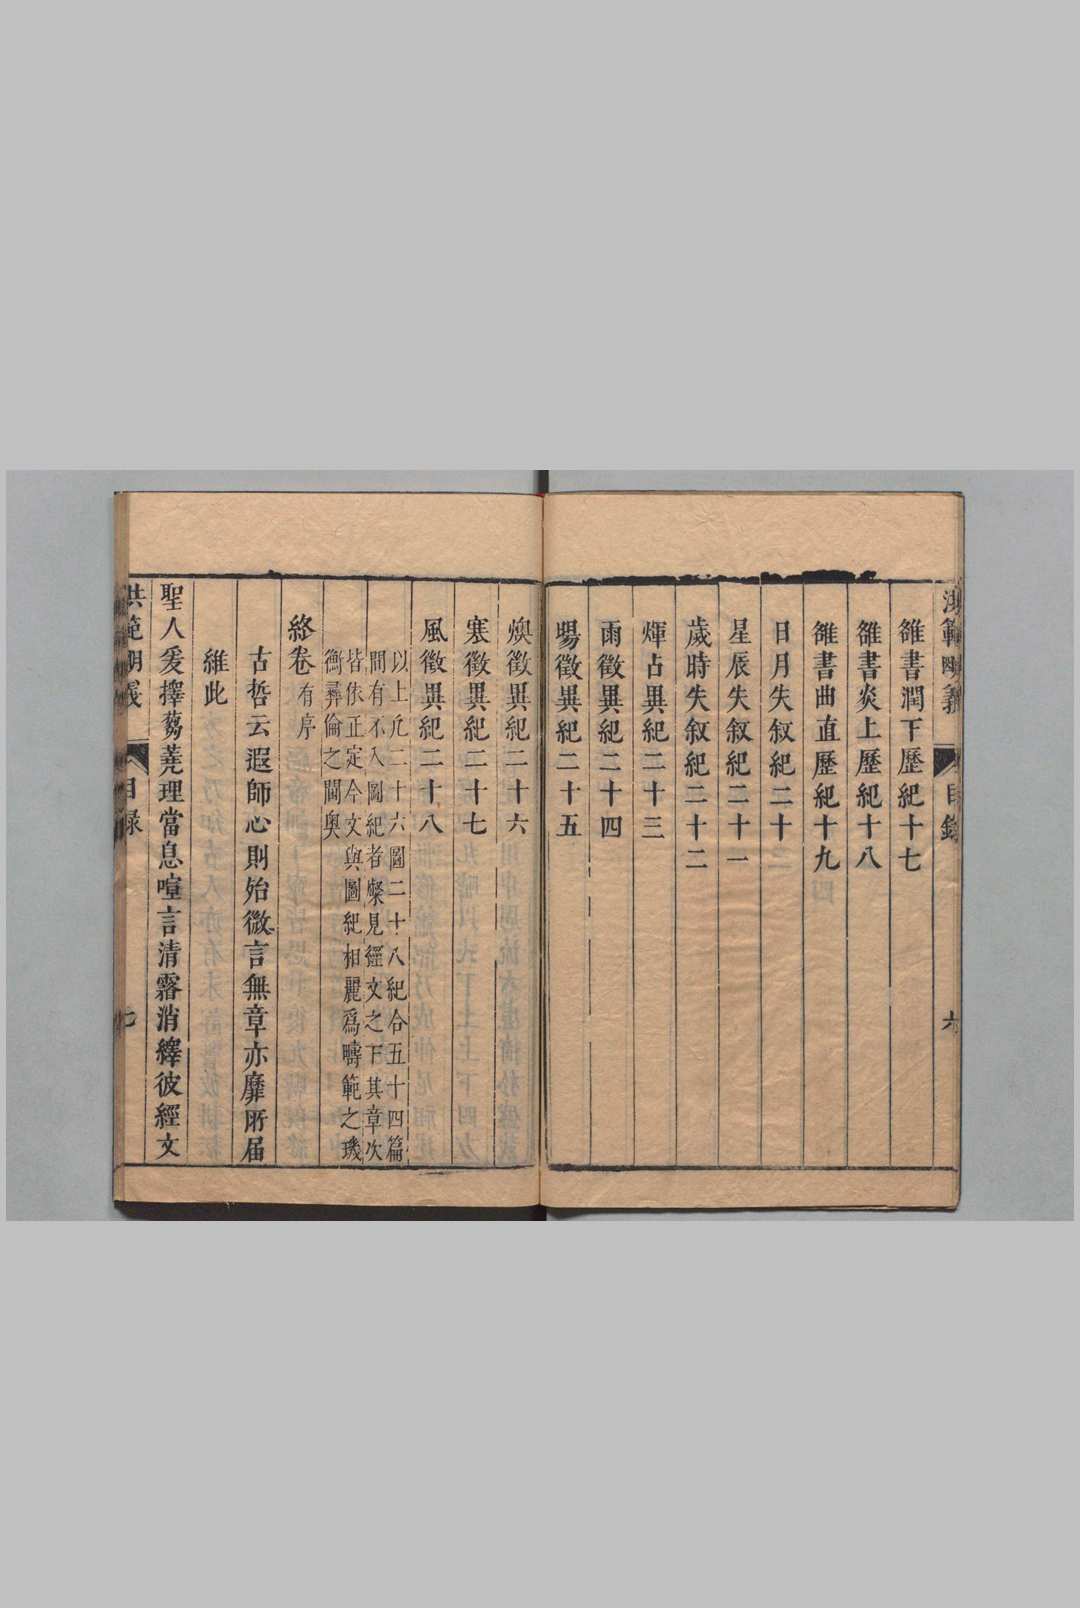 洪範明義 目錄 六
雒書潤下歷紀十七
雒書炎上歷紀十八
雒書曲直歷紀十九
日月失叙紀二十
星辰失叙紀二十一
歲時失叙紀二十二
煇占異紀二十三
雨徵異紀二十四
暘徵異紀二十五
燠徵異紀二十六
寒徵異紀二十七
風徵異紀二十八
以上凡二十六圖二十八紀合五十四篇
間有不入圖紀者槩見經文之下其章次
皆依正定今文與圖紀相麗爲疇範之璣
衡彛倫之閫奥
終卷有序
古哲云遐師心則殆微言無章亦靡所届
維此
聖人爰擇蒭蕘理當息喧言清霧消繹彼經文
洪範明義 目録 七